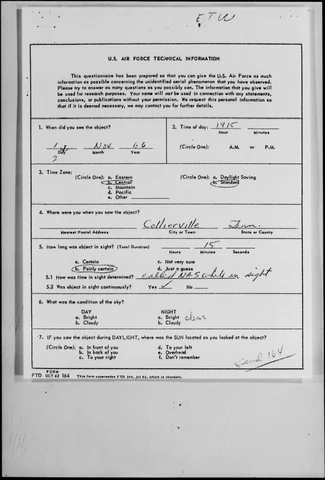 FTW
U.S. AIR FORCE TECHNICAL INFORMATION
This questionnaire has been prepared so that you can give the U.S. Air Force as much
information as possible concerning the unidentified aerial phenomenon that you have observed.
Please try to answer as many questions as you possibly can. The information that you give will
be used for research purposes. Your name will not be used in connection with any statements,
conclusions, or publications without your permission. We request this personal information so
that if it is deemed necessary, we may contact you for further details.
1. When did you see the object?
1 Nov 66
Day Month Year
2. Time of day: 1915
Hour Minutes
(Circle One): A.M. or P.M.
3. Time Zone:
(Circle One): a. Eastern
b. Central
c. Mountain
d. Pacific
e. Other
(Circle One): a. Daylight Saving
b. Standard
4. Where were you when you saw the object?
Collierville Tenn.
Nearest Postal Address City or Town State or County
5. How long was object in sight? (Total Duration) 15
Hours Minutes Seconds
a. Certain c. Not very sure
b. Fairly certain d. Just a guess
5.1 How was time in sight determined? called NAS while in sight
5.2 Was object in sight continuously? Yes ✓ No
6. What was the condition of the sky?
DAY NIGHT
a. Bright a. Bright clear
b. Cloudy b. Cloudy
7. IF you saw the object during DAYLIGHT, where was the SUN located as you looked at the object?
(Circle One): a. In front of you d. To your left
b. In back of you e. Overhead
c. To your right f. Don't remember
164
FORM
FTD OCT 62 164 This form supersedes FTD 164, Jul 61, which is obsolete.